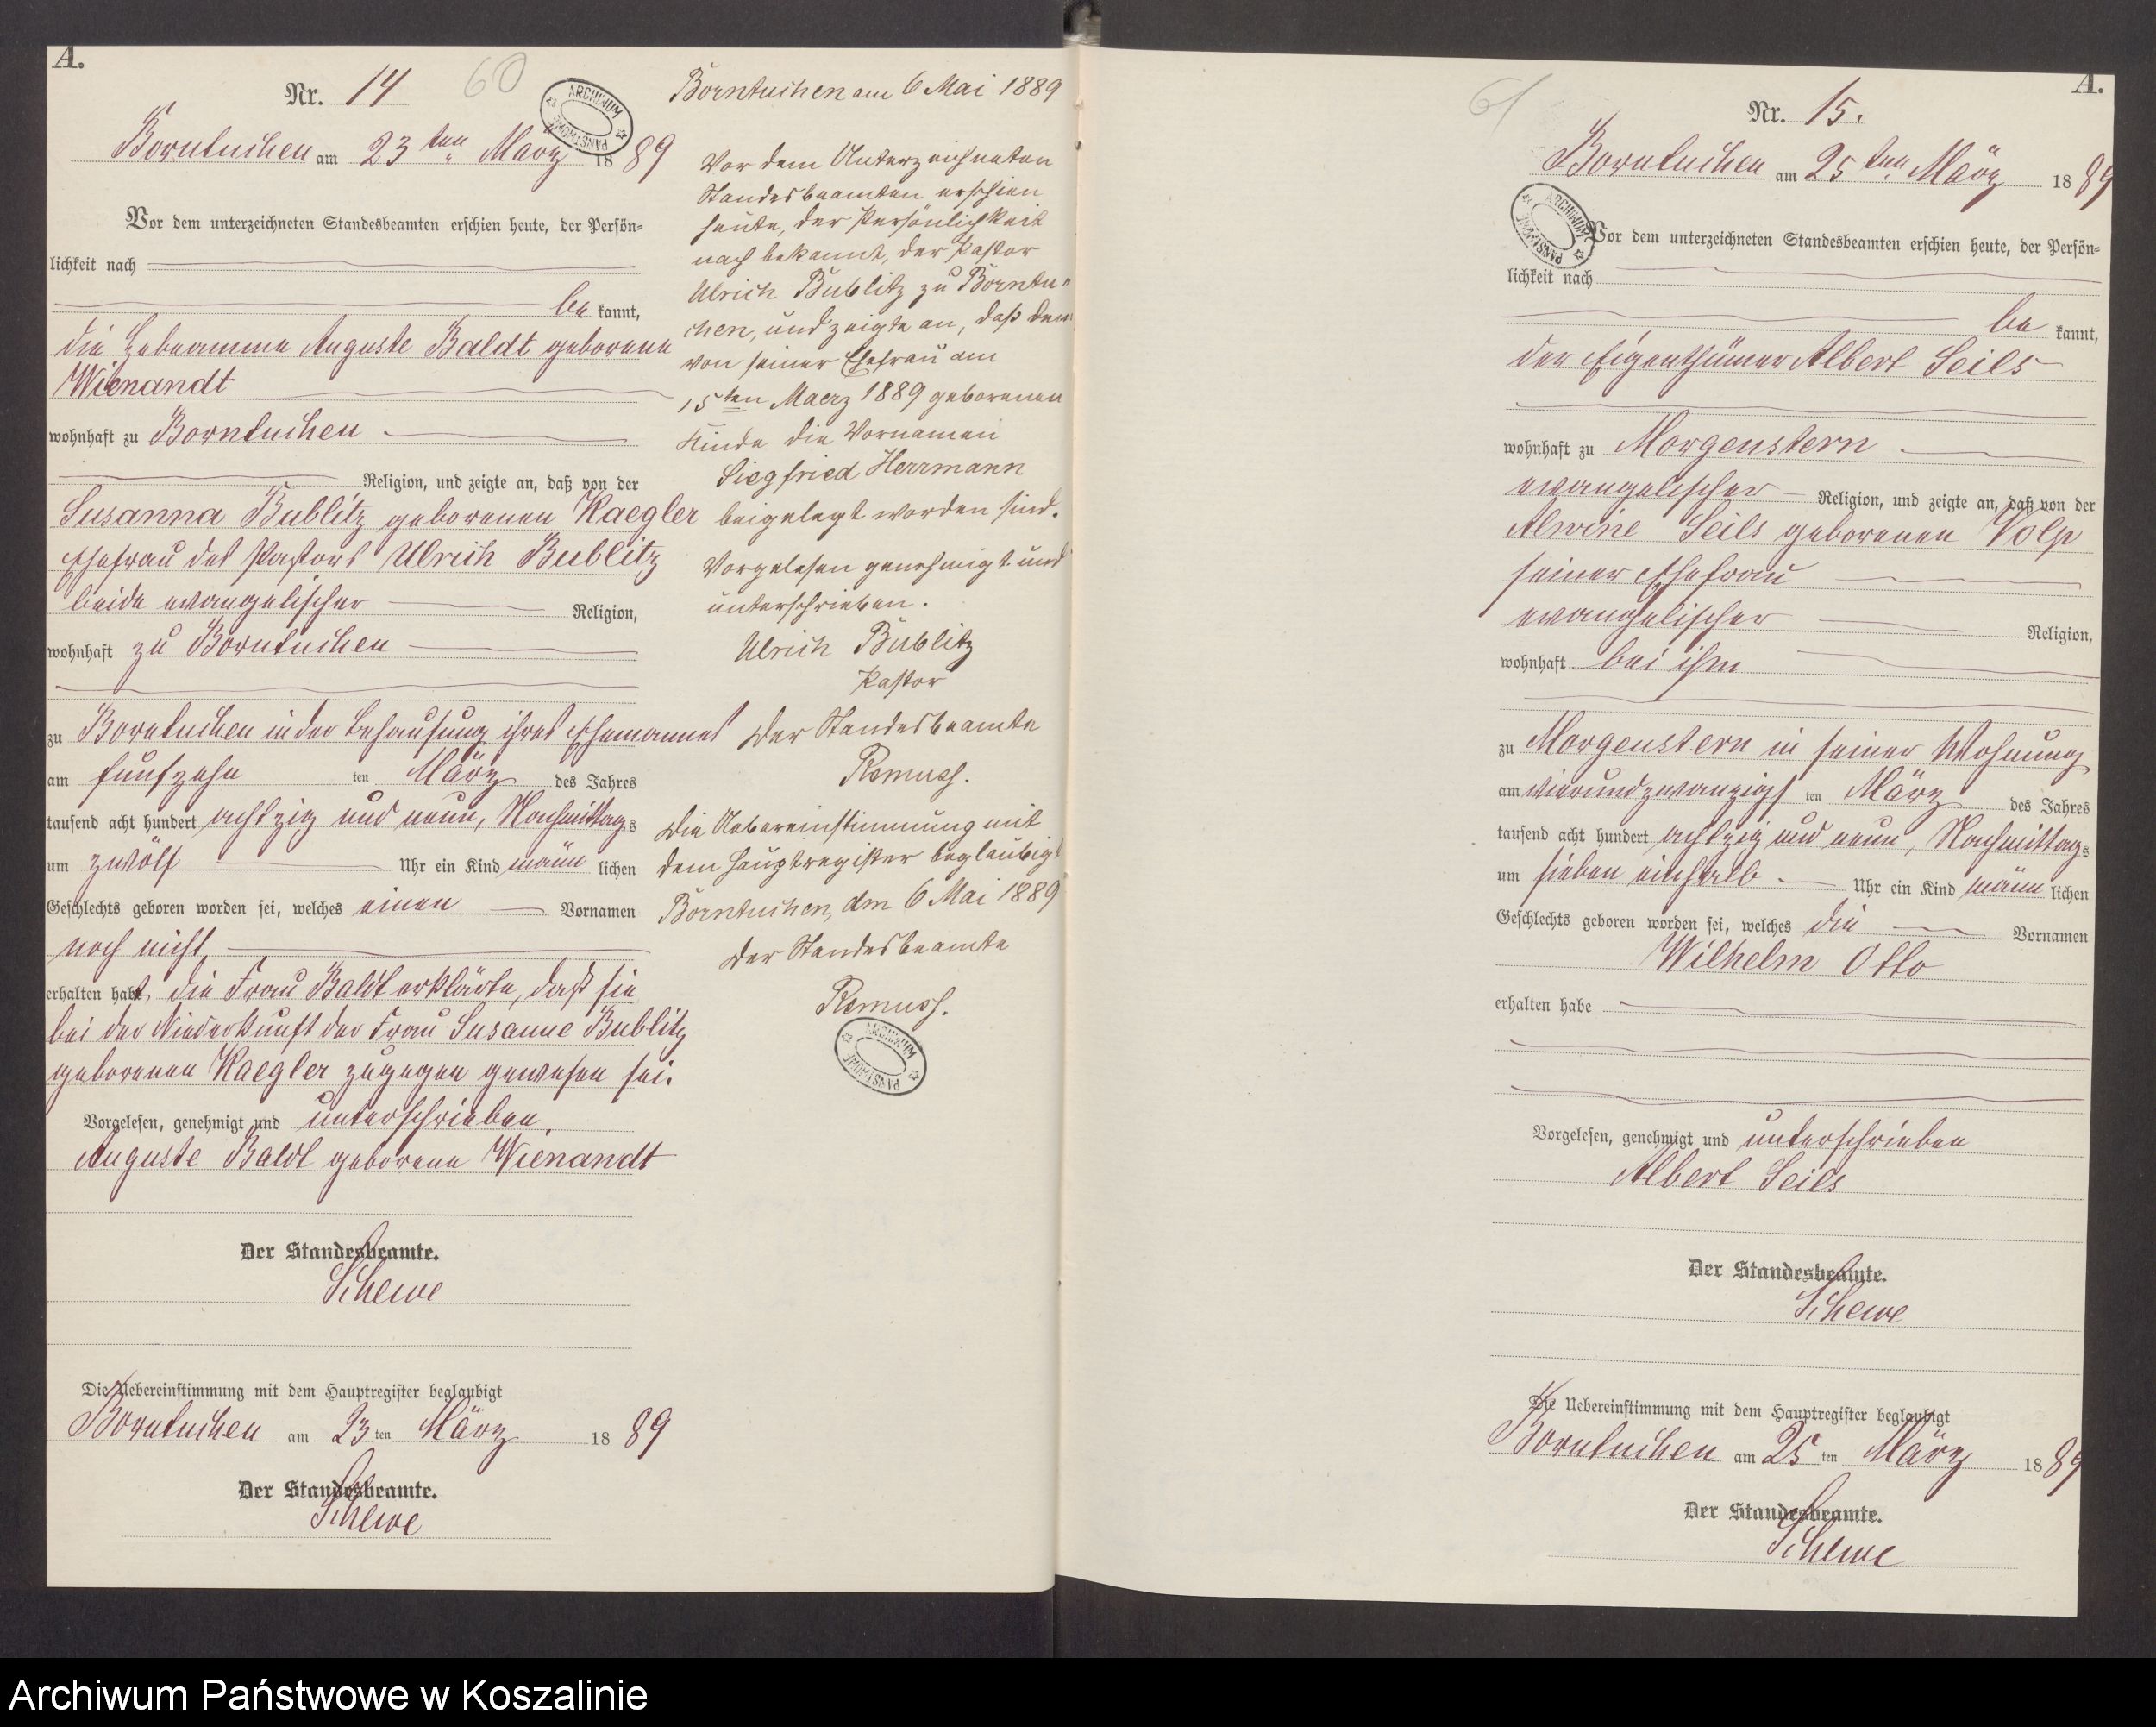 A.
Nr. 14
60
Borntuchen am 23ten März 1889
Vor dem unterzeichneten Standesbeamten erschien heute, der Persön-
lichkeit nach
be kannt,
die Hebeamme Auguste Baldt geborene
Wienandt
wohnhaft zu Borntuchen
Religion, und zeigte an, daß von der
Susanna Bublitz geborenen Kaegler
Ehefrau des Pastors Ulrich Bublitz
beide evangelischer Religion,
wohnhaft zu Borntuchen
zu Borntuchen in der Behausung ihres Ehemannes
am fünfzehn ten März des Jahres
tausend acht hundert achtzig und neun, Nachmittags
um zwölf Uhr ein Kind männ lichen
Geschlechts geboren worden sei, welches einen Vornamen
noch nicht
erhalten habe, die Frau Baldt erklärte, daß sie
bei der Niederkunft der Frau Susanne Bublitz
geborenen Kaegler zugegen gewesen sei.
Vorgelesen, genehmigt und unterschrieben.
Auguste Baldt geborene Wienandt
Der Standesbeamte.
Schewe
Die Uebereinstimmung mit dem Hauptregister beglaubigt
Borntuchen am 23 ten März 1889
Der Standesbeamte.
Schewe
ARCHIWUM PAŃSTWOWE
Borntuchen am 6 Mai 1889
Vor dem Unterzeichneten
Standesbeamten erschien
heute, der Persönlichkeit
nach bekannt, der Pastor
Ulrich Bublitz zu Borntu-
chen, und zeigte an, daß dem
von seiner Ehefrau am
15ten Maerz 1889 geborenen
Kinde die Vornamen
Siegfried Herrmann
beigelegt worden sind.
Vorgelesen genehmigt und
unterschrieben.
Ulrich Bublitz
Pastor
Der Standesbeamte
Remuss.
Die Uebereinstimmung mit
dem Hauptregister beglaubigt
Borntuchen, dm 6 Mai 1889
Der Standesbeamte
Remuss.
ARCHIWUM PAŃSTWOWE
A.
61
Nr. 15.
Borntuchen am 25ten März 1889
ARCHIWUM PAŃSTWOWE
Vor dem unterzeichneten Standesbeamten erschien heute, der Persön-
lichkeit nach
be kannt,
der Eigenthümer Albert Seils
wohnhaft zu Morgenstern
evangelischer Religion, und zeigte an, daß von der
Alwine Seils geborenen Volp
seiner Ehefrau
evangelischer Religion,
wohnhaft bei ihm
zu Morgenstern in seiner Wohnung
am vierundzwanzigs ten März des Jahres
tausend acht hundert achtzig und neun, Nachmittags
um sieben einhalb Uhr ein Kind männ lichen
Geschlechts geboren worden sei, welches die Vornamen
Wilhelm Otto
erhalten habe
Vorgelesen, genehmigt und unterschrieben
Albert Seils
Der Standesbeamte.
Schewe
Die Uebereinstimmung mit dem Hauptregister beglaubigt
Borntuchen am 25 ten März 1889
Der Standesbeamte.
Schewe
Archiwum Państwowe w Koszalinie